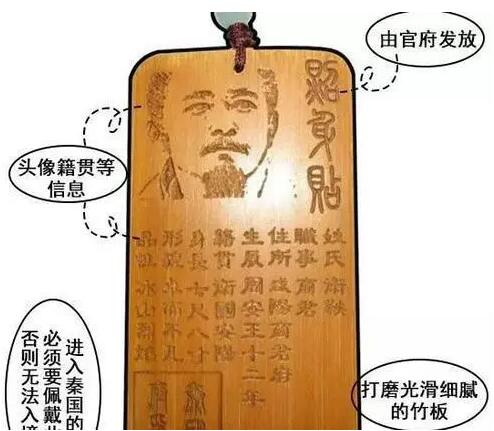 由官府发放
照身貼
头像籍贯等
信息
姓氏 衛鞅
職事 商君
住所 咸陽商君府
生辰 周安王十二年
籍貫 衛國安陽
身長 七尺八寸
形貌
品性 冰山烈焰
进入秦国的
必须要佩戴
否则无法入境
打磨光滑细腻
的竹板